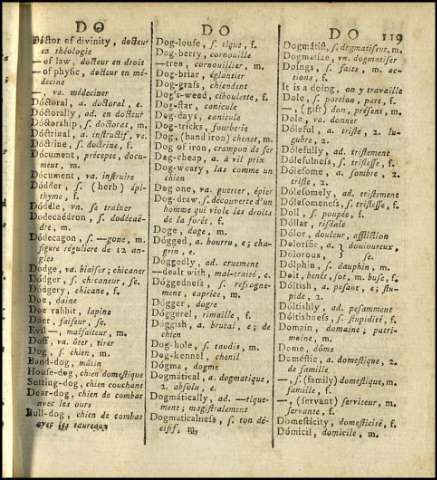 DO
DO
DO
119
Dóctor of divinity, docteur
en théologie
—of law, docteur en droit
—of physic, docteur en mé-
decine
—, va. médeciner
Dóctoral, a. doctoral, e.
Dóctorally, ad. en docteur
Dóctorship, s. doctorat, m.
Dóctrinal, a. instructif, ve.
Dóctrine, s. doctrine, f.
Dócument, précepte, docu-
ment, m.
Dócument, va. instruire
Dódder, s. (herb) épi-
thyme, f.
Dóddle, vn. se traîner
Dodecaédron, s. dodécaë-
dre, m.
Dódecagon, s. —gone, m.
figure régulière de 12 an-
gles
Dodge, va. biaiser; chicaner
Dódger, s. chicaneur, se.
Dódgery, chicane, f.
Doe, daine
Doe rabbit, lapine
Dóer, faiseur, se.
Evil—, malfaiteur, m.
Doff, va. ôter, tirer
Dog, s. chien, m.
Band-dog, mâtin
House-dog, chien domestique
Setting-dog, chien couchant
Bear-dog, chien de combat
avec les ours
Bull-dog, chien de combat
avec les taureaux
Dog-louse, s. tique, f.
Dog-berry, cornouille
—tree, cornouillier, m.
Dog-briar, églantier
Dog-grass, chiendent
Dog's-weed, ciboulette, f.
Dog-star, canicule
Dog-days, canicule
Dog-tricks, fourberie
Dog, (hand iron) chenet, m.
Dog of iron, crampon de fer
Dog-cheap, a. à vil prix
Dog-weary, las comme un
chien
Dog one, va. guetter, épier
Dog-draw, s. découverte d'un
homme qui viole les droits
de la forêt, f.
Doge, doge, m.
Dógged, a. bourru, e; cha-
grin, e.
Dóggedly, ad. cruement
—dealt with, mal-traité, e.
Dóggedness, s. refrogne-
ment, caprice, m.
Dógger, dogre
Dóggerel, rimaille, f.
Dóggish, a. brutal, e; de
chien
Dog-hole, s. taudis, m.
Dog-kennel, chenil
Dógma, dogme
Dogmátical, a. dogmatique,
2. absolu, e.
Dogmátically, ad. —tique-
ment; magistralement
Dogmáticalness, s. ton dé-
cisif, m.
Dogmátist, s. dogmatiseur, m.
Dógmatize, vn. dogmatiser
Doings, s. faits, m. ac-
tions, f.
It is a doing, on y travaille
Dole, s. portion, part, f.
—, (gift) don, présent, m.
Dole, va. donner
Dóleful, a. triste, 2. lu-
gubre, 2.
Dólefully, ad. tristement
Dólefulness, s. tristesse, f.
Dólesome, a. sombre, 2.
triste, 2.
Dólesomely, ad. tristement
Dólesomeness, s. tristesse, f.
Doll, s. poupée, f.
Dóllar, risdale
Dólor, douleur, affliction
Dolorífic, a. } douloureux,
Dólorous, } se.
Dólphin, s. dauphin, m.
Dolt, benêt, sot, m. buse, f.
Dóltish, a. pesant, e; stu-
pide, 2.
Dóltishly, ad. pesamment
Dóltishness, s. stupidité, f.
Domain, domaine; patri-
moine, m.
Dome, dôme
Doméstic, a. domestique, 2.
de famille
—, s. (family) domestique, m.
famille, f.
—, (servant) serviteur, m.
servante, f.
Domesticity, domesticité, f.
Dómicil, domicile, m.